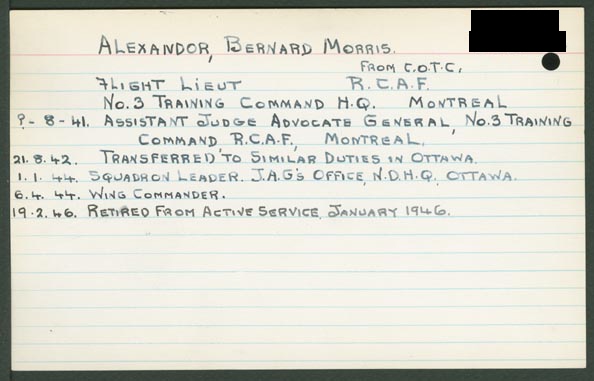 ALEXANDOR, BERNARD MORRIS.
FROM C.O.T.C.,
FLIGHT LIEUT R.C.A.F.
NO. 3 TRAINING COMMAND H.Q. MONTREAL
?- 8 - 41. ASSISTANT JUDGE ADVOCATE GENERAL, NO. 3 TRAINING
COMMAND, R.C.A.F., MONTREAL.
21. 8. 42. TRANSFERRED TO SIMILAR DUTIES IN OTTAWA.
1. 1. 44. SQUADRON LEADER. J.A.G'S OFFICE, N.D.H.Q., OTTAWA.
6. 4. 44. WING COMMANDER.
19. 2. 46. RETIRED FROM ACTIVE SERVICE, JANUARY 1946.